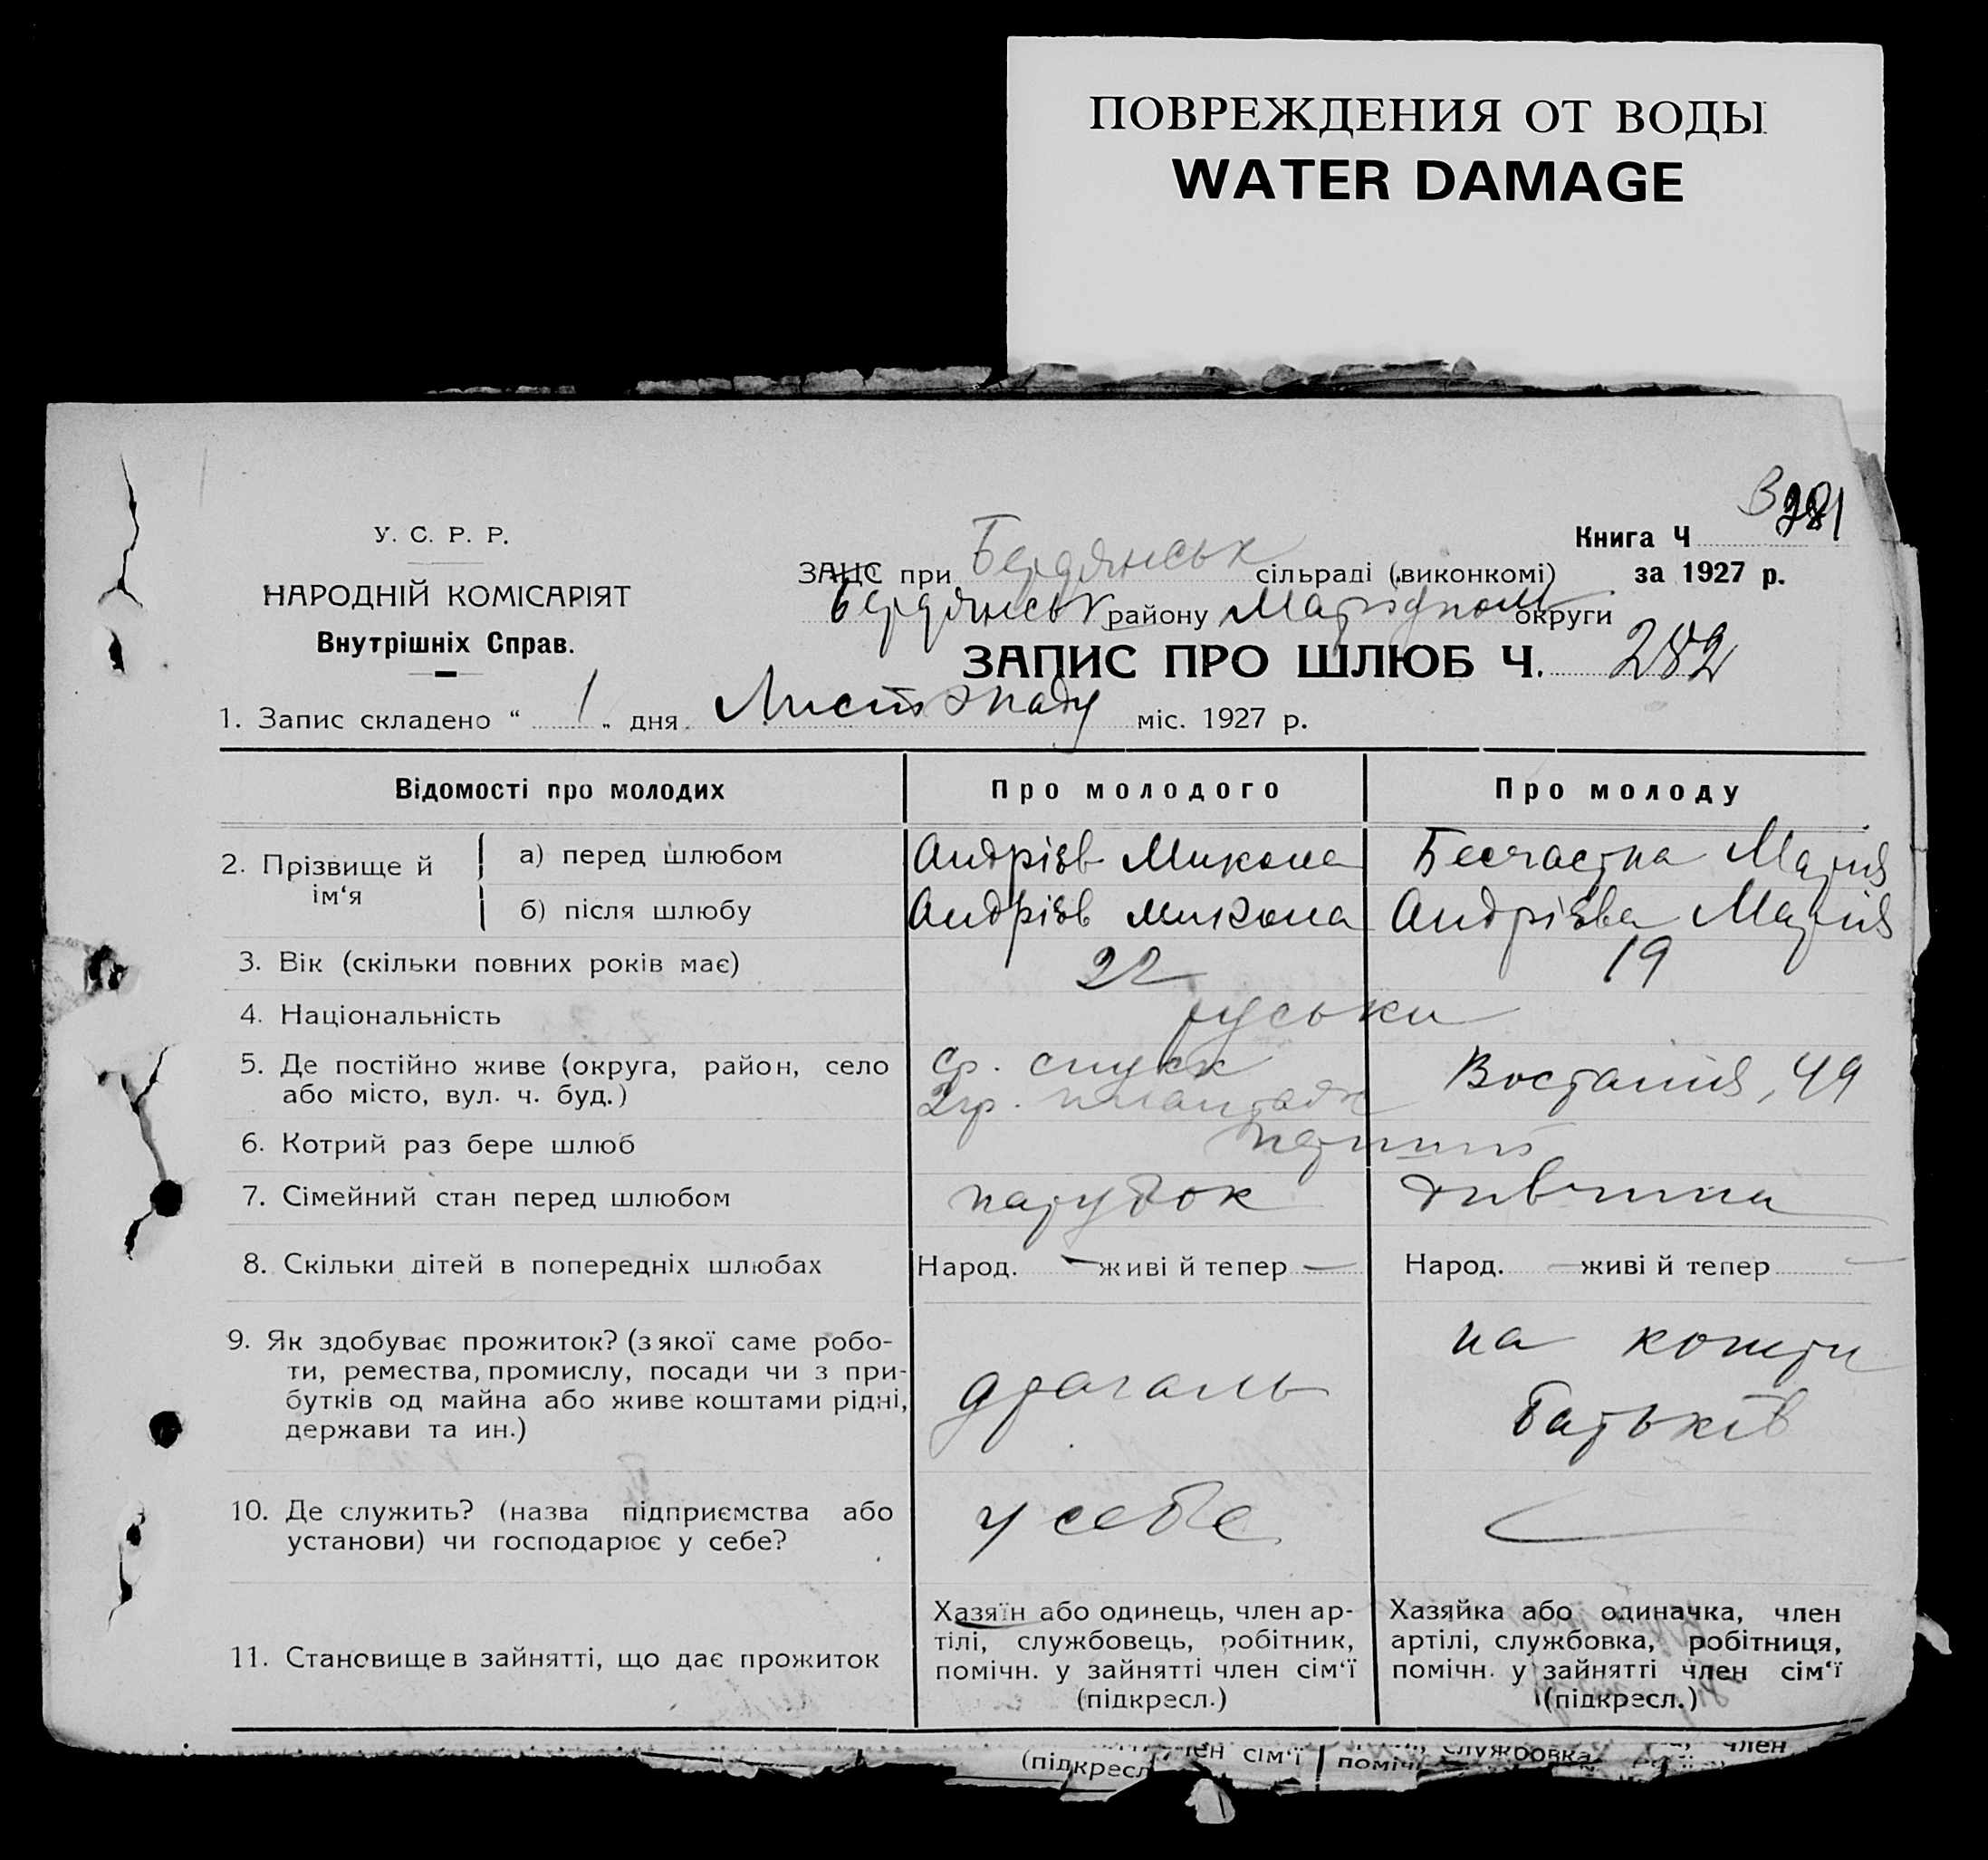 ПОВРЕЖДЕНИЯ ОТ ВОДЫ
WATER DAMAGE
У. С. Р. Р.
НАРОДНІЙ КОМІСАРІЯТ
Внутрішніх Справ.
Книга Ч
за 1927 р.
ЗАЦС при Бердянськ сільраді (виконкомі)
Бердянськ району Маріюпол округи
ЗАПИС ПРО ШЛЮБ Ч. 282
1. Запис складено “ 1 „ дня Листопаду міс. 1927 р.
Відомості про молодих Про молодого Про молоду
2. Прізвище й ім‘я
а) перед шлюбом Андрієв Микола Бесчастна Марія
б) після шлюбу Андрієв Микола Андрієва Марія
3. Вік (скільки повних років має) 22 19
4. Національність руськи
5. Де постійно живе (округа, район, село Ср. спуск
або місто, вул. ч. буд.) Востания, 49
6. Котрий раз бере шлюб перший
7. Сімейний стан перед шлюбом парубок дивчина
8. Скільки дітей в попередніх шлюбах Народ. — живі й тепер — Народ. — живі й тепер —
9. Як здобуває прожиток? (з якої саме робо-
ти, ремества, промислу, посади чи з при-
бутків од майна або живе коштами рідні,
держави та ин.)
драгаль
на кошти
батьків
10. Де служить? (назва підприємства або
установи) чи господарює у себе?
у себе —
11. Становище в зайнятті, що дає прожиток
Хазяїн або одинець, член ар-
тілі, службовець, робітник,
помічн. у зайнятті член сім‘ї
(підкресл.)
Хазяйка або одиначка, член
артілі, службовка, робітниця,
помічн. у зайнятті член сім‘ї
(підкресл.)
член сім‘ї
(підкресл
службовка
член